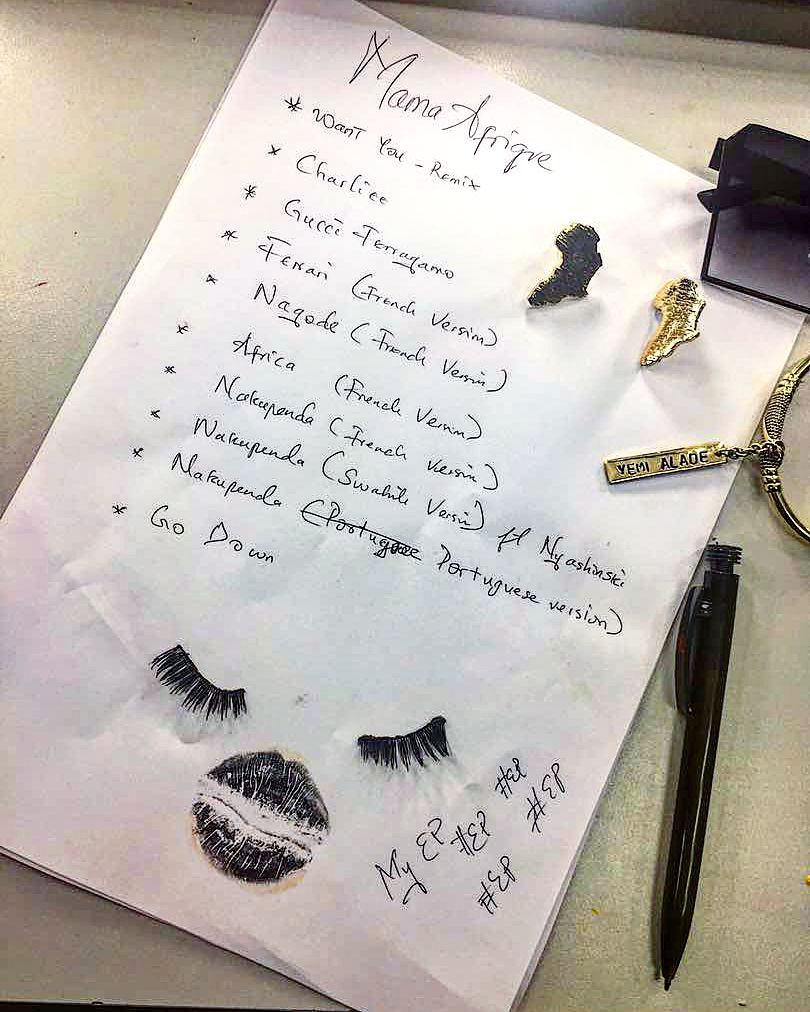 Mama Afrique
* Want You - Remix
* Charliee
* Gucci Ferragamo
* Ferrari (French Version)
* Nagode (French Version)
* Africa (French Version)
* Nakupenda (French Version)
* Nakupenda (Swahili Version) ft Nyashinski
* Nakupenda (Portugese Portuguese version)
* Go Down
YEMI ALADE
My EP #EP #EP
#EP #EP